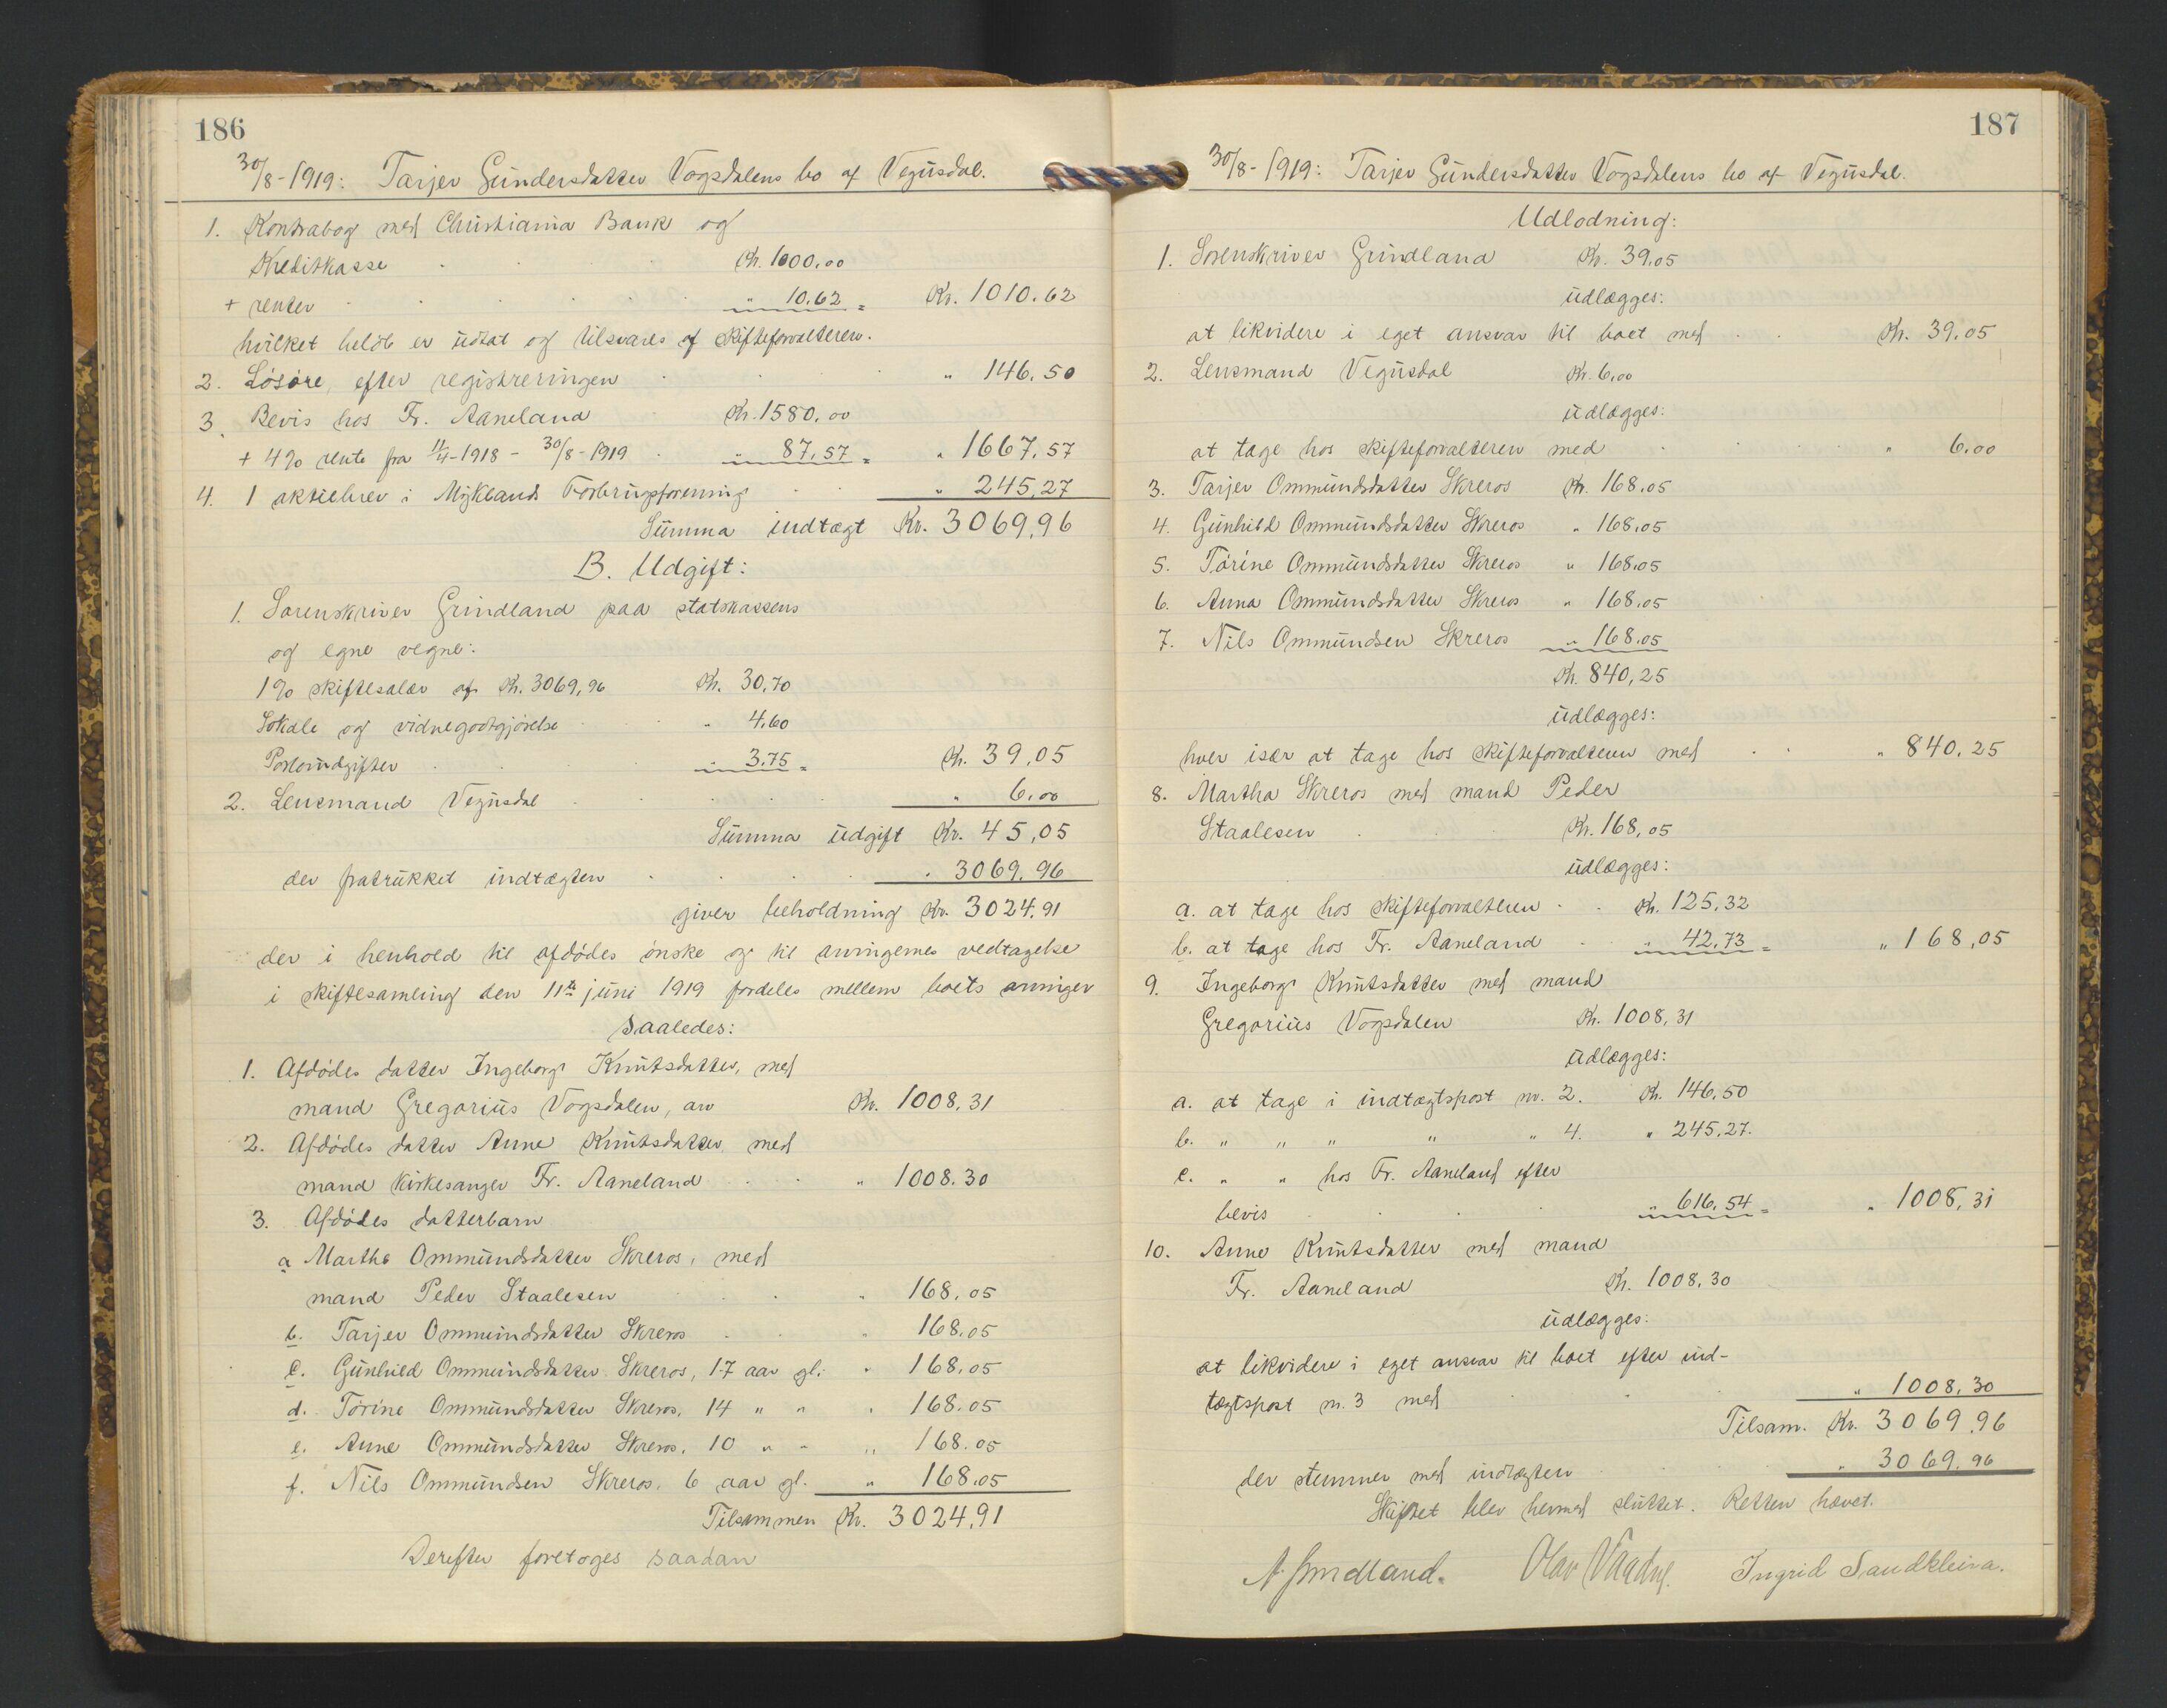 186
30/8-1919: Tarjer Gundersdatter Vogsdalens bo af Vegusdal.
1. Kontrabog med Christiania Bank og
Kreditkasse . . . Kr. 1000.00
+ renter . . . . . " 10.62 = Kr. 1010.62
hvilket beløb er udtat og tilsvares af skifteforvalteren.
2. Løsøre, efter registreringen . . . " 146.50
3. Bevis hos Fr. Aaneland Kr. 1580.00
+ 4% rente fra 11/4-1918 - 30/8-1919 . " 87,57 = " 1667,57
4. 1 aktiebrev i Myklands Forbrugsforening . . " 245,27
Summa indtægt Kr. 3069,96
B. Udgift:
1. Sorenskriver Grindland paa statskassens
og egne vegne:
1% skiftesalær af Kr. 3069,96 Kr. 30,70
Lokale og vidnegodtgjørelse . . . " 4.60
Portoudgifter . . . " 3.75 = Kr. 39,05
2. Lensmand Vegusdal . . . " 6.00
Summa udgift Kr. 45,05
der fratrukket indtægten . . . " 3069.96
giver beholdning Kr. 3024.91
der i henhold til afdødes ønske og til arvingernes vedtagelse
i skiftesamling den 11te juni 1919 fordeles mellem boets arvinger
saaledes:
1. Afdødes datter Ingeborg Knutsdatter, med
mand Gregorius Vogsdalen, arv Kr. 1008,31
2. Afdødes datter Anne Knutsdatter, med
mand kirkesanger Fr. Aaneland . . . " 1008.30
3. Afdødes datterbarn
a Martha Ommundsdatter Skreros, med
mand Peder Staalesen . . " 168,05
b. Tarjer Ommundsdatter Skreros . . " 168.05
c. Gunhild Ommundsdatter Skreros, 17 aar gl. " 168.05
d. Torine Ommundsdatter Skreros, 14 " " " 168.05
e. Anne Ommundsdatter Skreros, 10 " " " 168.05
f. Nils Ommundsen Skreros, 6 aar gl. " 168.05
Tilsammen Kr. 3024,91
Derefter foretoges saadan
187
30/8-1919: Tarjer Gundersdatter Vogsdalens bo af Vegusdal.
Udlodning:
1. Sorenskriver Grindland Kr. 39.05
udlægges:
at likvidere i eget ansvar til boet med . . Kr. 39.05
2. Lensmand Vegusdal Kr. 6,00
udlægges:
at tage hos skifteforvalteren med . . . " 6.00
3. Tarjer Ommundsdatter Skreros Kr. 168.05
4. Gunhild Ommundsdatter Skreros " 168.05
5. Torine Ommundsdatter Skreros " 168.05
6. Anna Ommundsdatter Skreros " 168.05
7. Nils Ommundsen Skreros " 168.05
Kr. 840,25
udlægges:
hver især at tage hos skifteforvalteren med . . " 840.25
8. Martha Skreros med mand Peder
Staalesen . . Kr. 168,05
udlægges:
a. at tage hos skifteforvalteren . . Kr. 125,32
b. at tage hos Fr. Aaneland . " 42,73 = " 168,05
9. Ingeborg Knutsdatter med mand
Gregorius Vogsdalen Kr. 1008,31
udlægges:
a. at tage i indtægtspost nr. 2. Kr. 146,50
b. " " " " " 4. " 245,27.
c. " " hos Fr. Aaneland efter
bevis . . . " 616,54 = " 1008,31
10. Anne Knutsdatter med mand
Fr. Aaneland Kr. 1008,30
udlægges:
at likvidere i eget ansvar til boet efter ind-
tægtspost nr. 3 med . . . " 1008,30
Tilsam. Kr. 3069.96
der stemmer med indtægten . . " 3069.96
Skiftet blev hermed sluttet. Retten hævet.
N. Grindland. Olav Ingrid Sandkleiva.